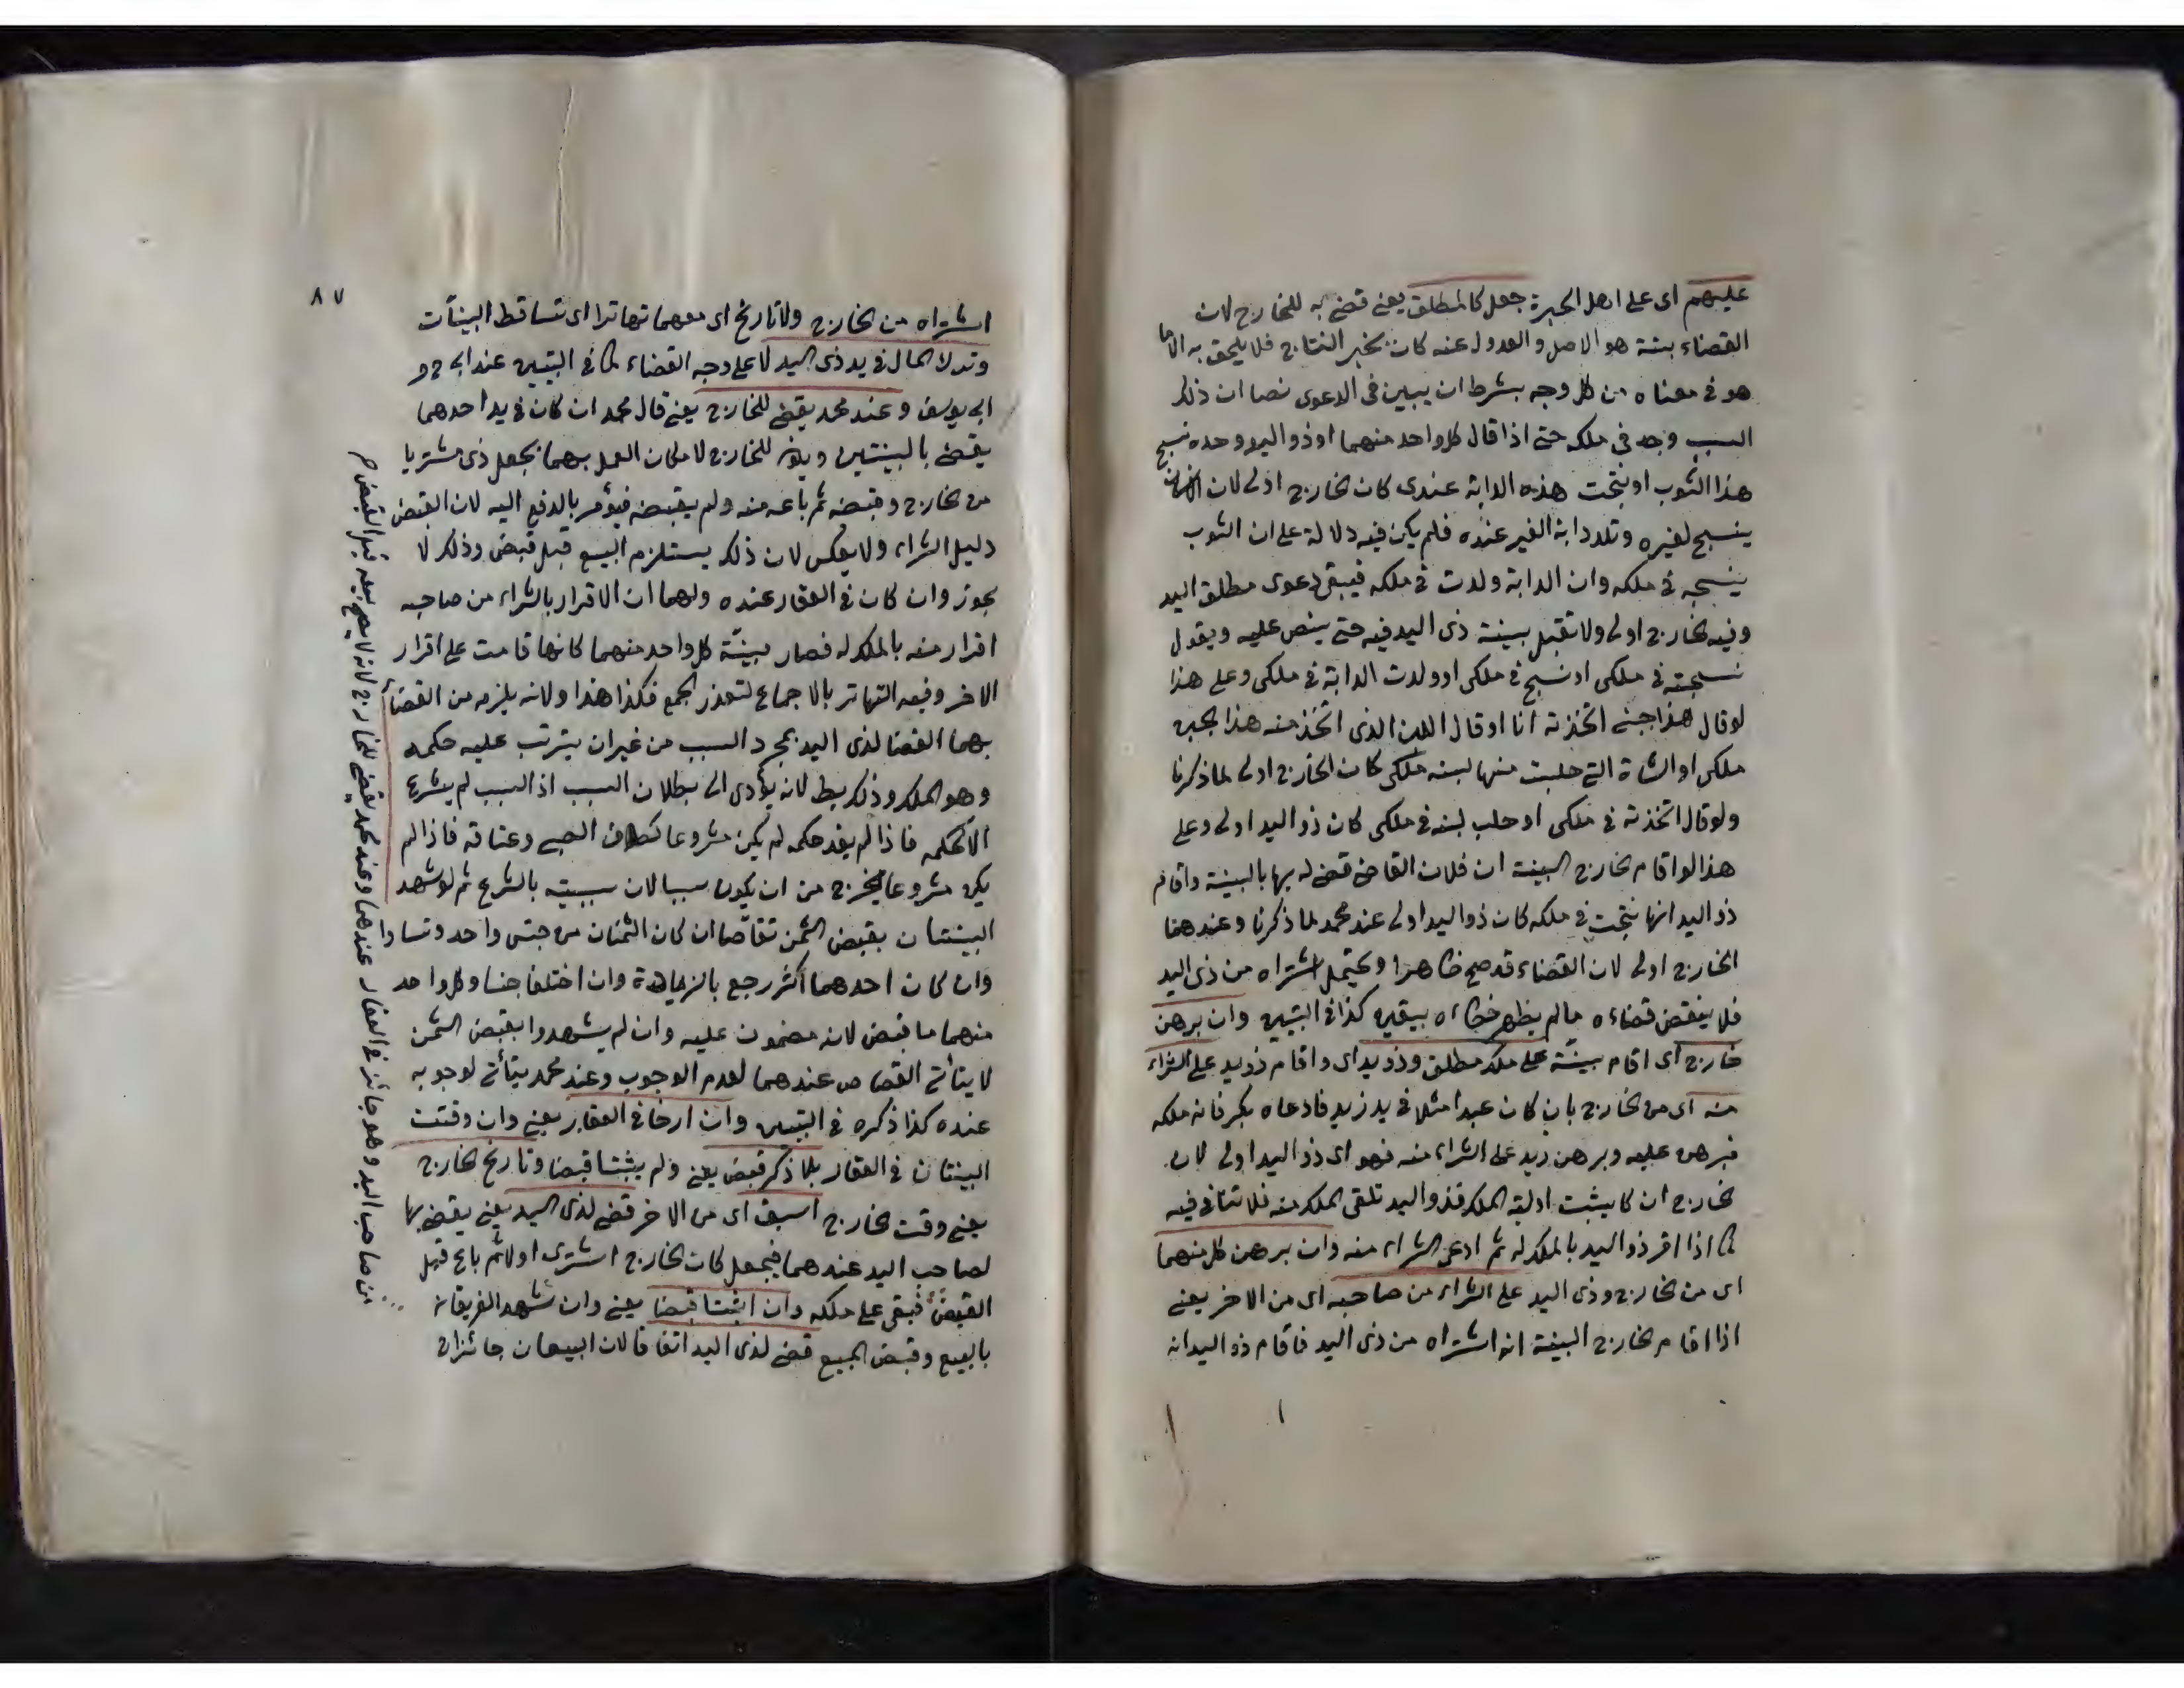 عليهم اى على اهل الخبرة جعل كالمطلق يعنى قضى به للخارج لان
القضاء ببينة هو الاصل والعدول عنه كان بخبر النتاج فلا يلحق به الا ما
هو فى معناه من كل وجه بشرط ان يبين فى الدعوى نصا ان ذلك
السبب وجد فى ملكه حتى اذا قال كل واحد منهما او ذو اليد وحده نسج
هذا الثوب او نتجت هذه الدابة عندى كان الخارج اولى لان الانسان
ينسج لغيره وتلد دابة الغير عنده فلم يكن فيه دلالة على ان الثوب
ينسجه فى ملكه وان الدابة ولدت فى ملكه فيبقى دعوى مطلق اليد
وفيه الخارج اولى ولا تقبل بينة ذى اليد فيه حتى ينص عليه ويقول
نسجته فى ملكى او نسج فى ملكى او ولدت الدابة فى ملكى وعلى هذا
لو قال هذا جبنى اتخذته انا او قال اللبن الذى اتخذ منه هذا الجبن
ملكى او الشاة التى حلبت منها لبنه ملكى كان الخارج اولى لما ذكرنا
ولو قال اتخذته فى ملكى او حلب لبنه فى ملكى كان ذو اليد اولى وعلى
هذا لو اقام الخارج البينة ان فلان القاضى قضى له بها بالبينة واقام
ذو اليد انها نتجت فى ملكه كان ذو اليد اولى عند محمد لما ذكرنا وعندهما
الخارج اولى لان القضاء قد صح ظاهرا ويحتمل اشتراه من ذى اليد
فلا ينقض قضاءه ما لم يظهر خطاءه بيقين كذا فى التبيين وان برهن
خارج اى اقام بينة على ملك مطلق وذو يد اى واقام ذو يد على الشراء
منه اى من الخارج بان كان عبدا مثلا فى يد زيد فادعاه بكر فانه ملكه
فبرهن عليه وبرهن زيد على الشراء منه فهو اى ذو اليد اولى لان
الخارج ان كان يثبت اولية الملك فذو اليد تلقى الملك منه فلا تنافى فيه
كما اذا اقر ذو اليد بالملك له ثم ادعى الشراء منه وان برهن كل منهما
اى من الخارج وذى اليد على الشراء من صاحبه اى من الاخر يعنى
اذا اقام الخارج البينة انه اشتراه من ذى اليد فاقام ذو اليد انه
٨٧
اشتراه من الخارج ولا تاريخ اى معهما تهاترا اى تتساقط البينات
وترك المال فى يد ذى اليد لا على وجه القضاء كما فى التبيين عند ابى ح و
ابى يوسف وعند محمد يقضى للخارج يعنى قال محمد ان كان فى يد احدهما
يقضى بالبينتين ويكون للخارج لامكان العمل بهما بجعل ذى مشتريا
من الخارج وقبضه ثم باعه منه ولم يقبضه فيؤمر بالدفع اليه لان القبض
دليل الشراء ولا يعكس لان ذلك يستلزم البيع قبل قبض وذلك لا
يجوز وان كان فى العقار عنده ولهما ان الاقرار بالشراء من صاحبه
اقرار منه بالملك له فصار بينة كل واحد منهما كانها قامت على اقرار
الاخر وفيه التهاتر بالاجماع لتعذر الجمع فكذا هذا ولانه يلزم من القضاء
بهما القضا لذى اليد بمجرد السبب من غير ان يترتب عليه حكمه
وهو الملك وذلك بط لانه يؤدى الى بطلان السبب اذ السبب لم يشرع
الا لحكمه فاذا لم يفد حكمه لم يكن مشروعا كطلاق الصبى وعتاقه فاذا لم
يكن مشروعا يخرج من ان يكون سببا لان سببيته بالشرع ثم لو شهد
البينتان بقبض الثمن تقاصا ان كان الثمنان من جنس واحد وتساويا
وان كان احدهما اكثر رجع بالزيادة وان اختلفا جنسا وكل واحد
منهما ما قبض لانه مضمون عليه وان لم يشهدوا بقبض الثمن
لا يتأتى القصاص عندهما لعدم الوجوب وعند محمد يتأتى لوجوبه
عنده كذا ذكره فى التبيين وان ارخا فى العقار يعنى وان وقتت
البينتان فى العقار بلا ذكر قبض يعنى ولم يثبتا قبضا وتاريخ الخارج
يعنى وقت الخارج اسبق اى من الاخر قضى لذى اليد يعنى يقضى بها
لصاحب اليد عندهما فيجعل كان الخارج اشترى اولا ثم باع قبل
القبض فبقى على ملكه وان اثبتا قبضا يعنى وان شهد الفريقان
بالبيع وقبض المبيع قضى لذى اليد اتفاقا لان البيعان جائزان
من صاحب اليد وهو جائز فى العقار عندهما وعند محمد يقضى للخارج لانه لا يصح بيعه قبل القبض